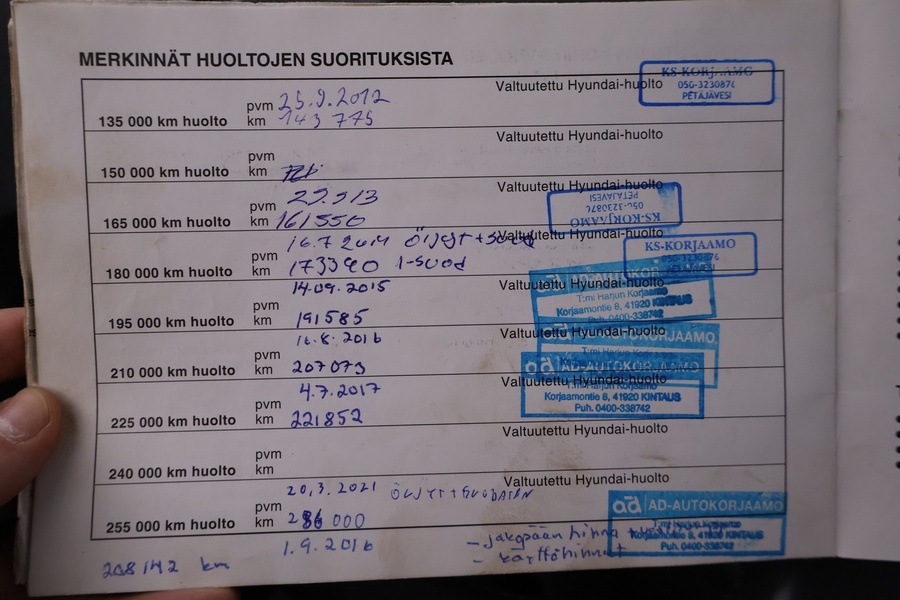 MERKINNÄT HUOLTOJEN SUORITUKSISTA
135 000 km huolto pvm 25.9.2012 Valtuutettu Hyundai-huolto
km 143 775
KS-KORJAAMO
PETÄJÄVESI
150 000 km huolto pvm Valtuutettu Hyundai-huolto
km
165 000 km huolto pvm Valtuutettu Hyundai-huolto
km 161550
KS-KORJAAMO
PETÄJÄVESI
180 000 km huolto pvm 16.7 2014 Valtuutettu Hyundai-huolto
km 173390
KS-KORJAAMO
PETÄJÄVESI
195 000 km huolto pvm 14.09.2015 Valtuutettu Hyundai-huolto
km 191585
AD-AUTOKORJAAMO
T:mi Harjun Korjaamo
Korjaamontie 8, 41920 KINTAUS
Puh. 0400-338742
210 000 km huolto pvm 16.8.2016 Valtuutettu Hyundai-huolto
km 207073
AD-AUTOKORJAAMO
225 000 km huolto pvm 4.7.2017 Valtuutettu Hyundai-huolto
km 221852
ad AD-AUTOKORJAAMO
T:mi Harjun Korjaamo
Korjaamontie 8, 41920 KINTAUS
Puh. 0400-338742
240 000 km huolto pvm Valtuutettu Hyundai-huolto
km
255 000 km huolto pvm 20.3.2021 Valtuutettu Hyundai-huolto
km 000
ad AD-AUTOKORJAAMO
T:mi Harjun Korjaamo
Korjaamontie 8, 41920 KINTAUS
Puh. 0400-338742
1.9.2016 - jakopään hihna
208142 km - käyttöhihnat